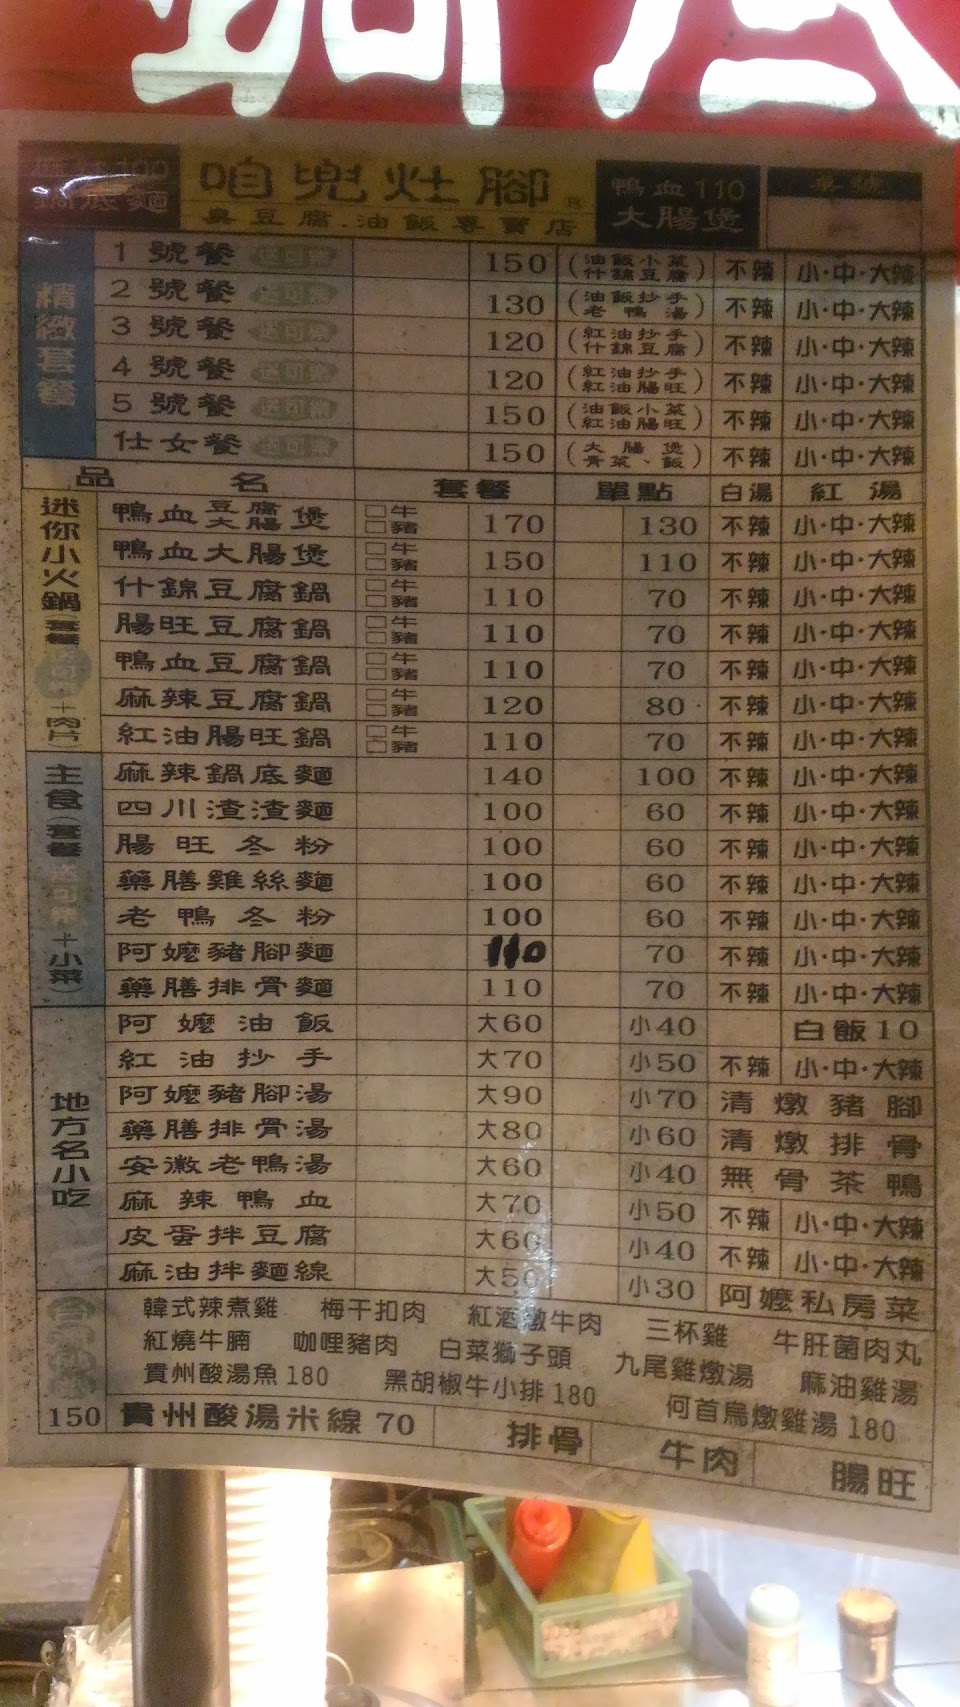 鍋底麵
咱兜灶腳
臭豆腐.油飯專賣店
鴨血110
大腸煲
桌號
精緻套餐
1號餐 送可樂 150 (油飯小菜 什錦豆腐) 不辣 小·中·大辣
2號餐 送可樂 130 (油飯抄手 老鴨湯) 不辣 小·中·大辣
3號餐 送可樂 120 (紅油抄手 什錦豆腐) 不辣 小·中·大辣
4號餐 送可樂 120 (紅油抄手 紅油腸旺) 不辣 小·中·大辣
5號餐 送可樂 150 (油飯小菜 紅油腸旺) 不辣 小·中·大辣
仕女餐 送可樂 150 (大腸煲 青菜、飯) 不辣 小·中·大辣
品名 套餐 單點 白湯 紅湯
迷你小火鍋(套餐送可樂+肉片)
鴨血豆腐大腸煲 □牛 □豬 170 130 不辣 小·中·大辣
鴨血大腸煲 □牛 □豬 150 110 不辣 小·中·大辣
什錦豆腐鍋 □牛 □豬 110 70 不辣 小·中·大辣
腸旺豆腐鍋 □牛 □豬 110 70 不辣 小·中·大辣
鴨血豆腐鍋 □牛 □豬 110 70 不辣 小·中·大辣
麻辣豆腐鍋 □牛 □豬 120 80 不辣 小·中·大辣
紅油腸旺鍋 □牛 □豬 110 70 不辣 小·中·大辣
主食(套餐送可樂+小菜)
麻辣鍋底麵 140 100 不辣 小·中·大辣
四川渣渣麵 100 60 不辣 小·中·大辣
腸旺冬粉 100 60 不辣 小·中·大辣
藥膳雞絲麵 100 60 不辣 小·中·大辣
老鴨冬粉 100 60 不辣 小·中·大辣
阿嬤豬腳麵 110 70 不辣 小·中·大辣
藥膳排骨麵 110 70 不辣 小·中·大辣
地方名小吃
阿嬤油飯 大60 小40 白飯10
紅油抄手 大70 小50 不辣 小·中·大辣
阿嬤豬腳湯 大90 小70 清燉豬腳
藥膳排骨湯 大80 小60 清燉排骨
安徽老鴨湯 大60 小40 無骨茶鴨
麻辣鴨血 大70 小50 不辣 小·中·大辣
皮蛋拌豆腐 大60 小40 不辣 小·中·大辣
麻油拌麵線 大50 小30 阿嬤私房菜
韓式辣煮雞 梅干扣肉 紅酒燉牛肉 三杯雞 牛肝菌肉丸
紅燒牛腩 咖哩豬肉 白菜獅子頭 九尾雞燉湯 麻油雞湯
貴州酸湯魚180 黑胡椒牛小排180 何首烏燉雞湯180
150 貴州酸湯米線70 排骨 牛肉 腸旺